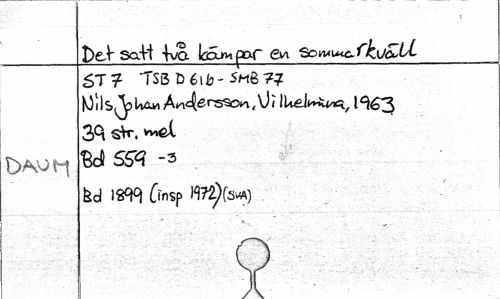 Det satt två kämpar en sommarkväll
ST 7 TSB D 61b - SMB 77
Nils Johan Andersson, Vilhelmina, 1963
39 str. mel
DAUM Bd 559 -3
Bd 1899 (insp 1972) (SVA)